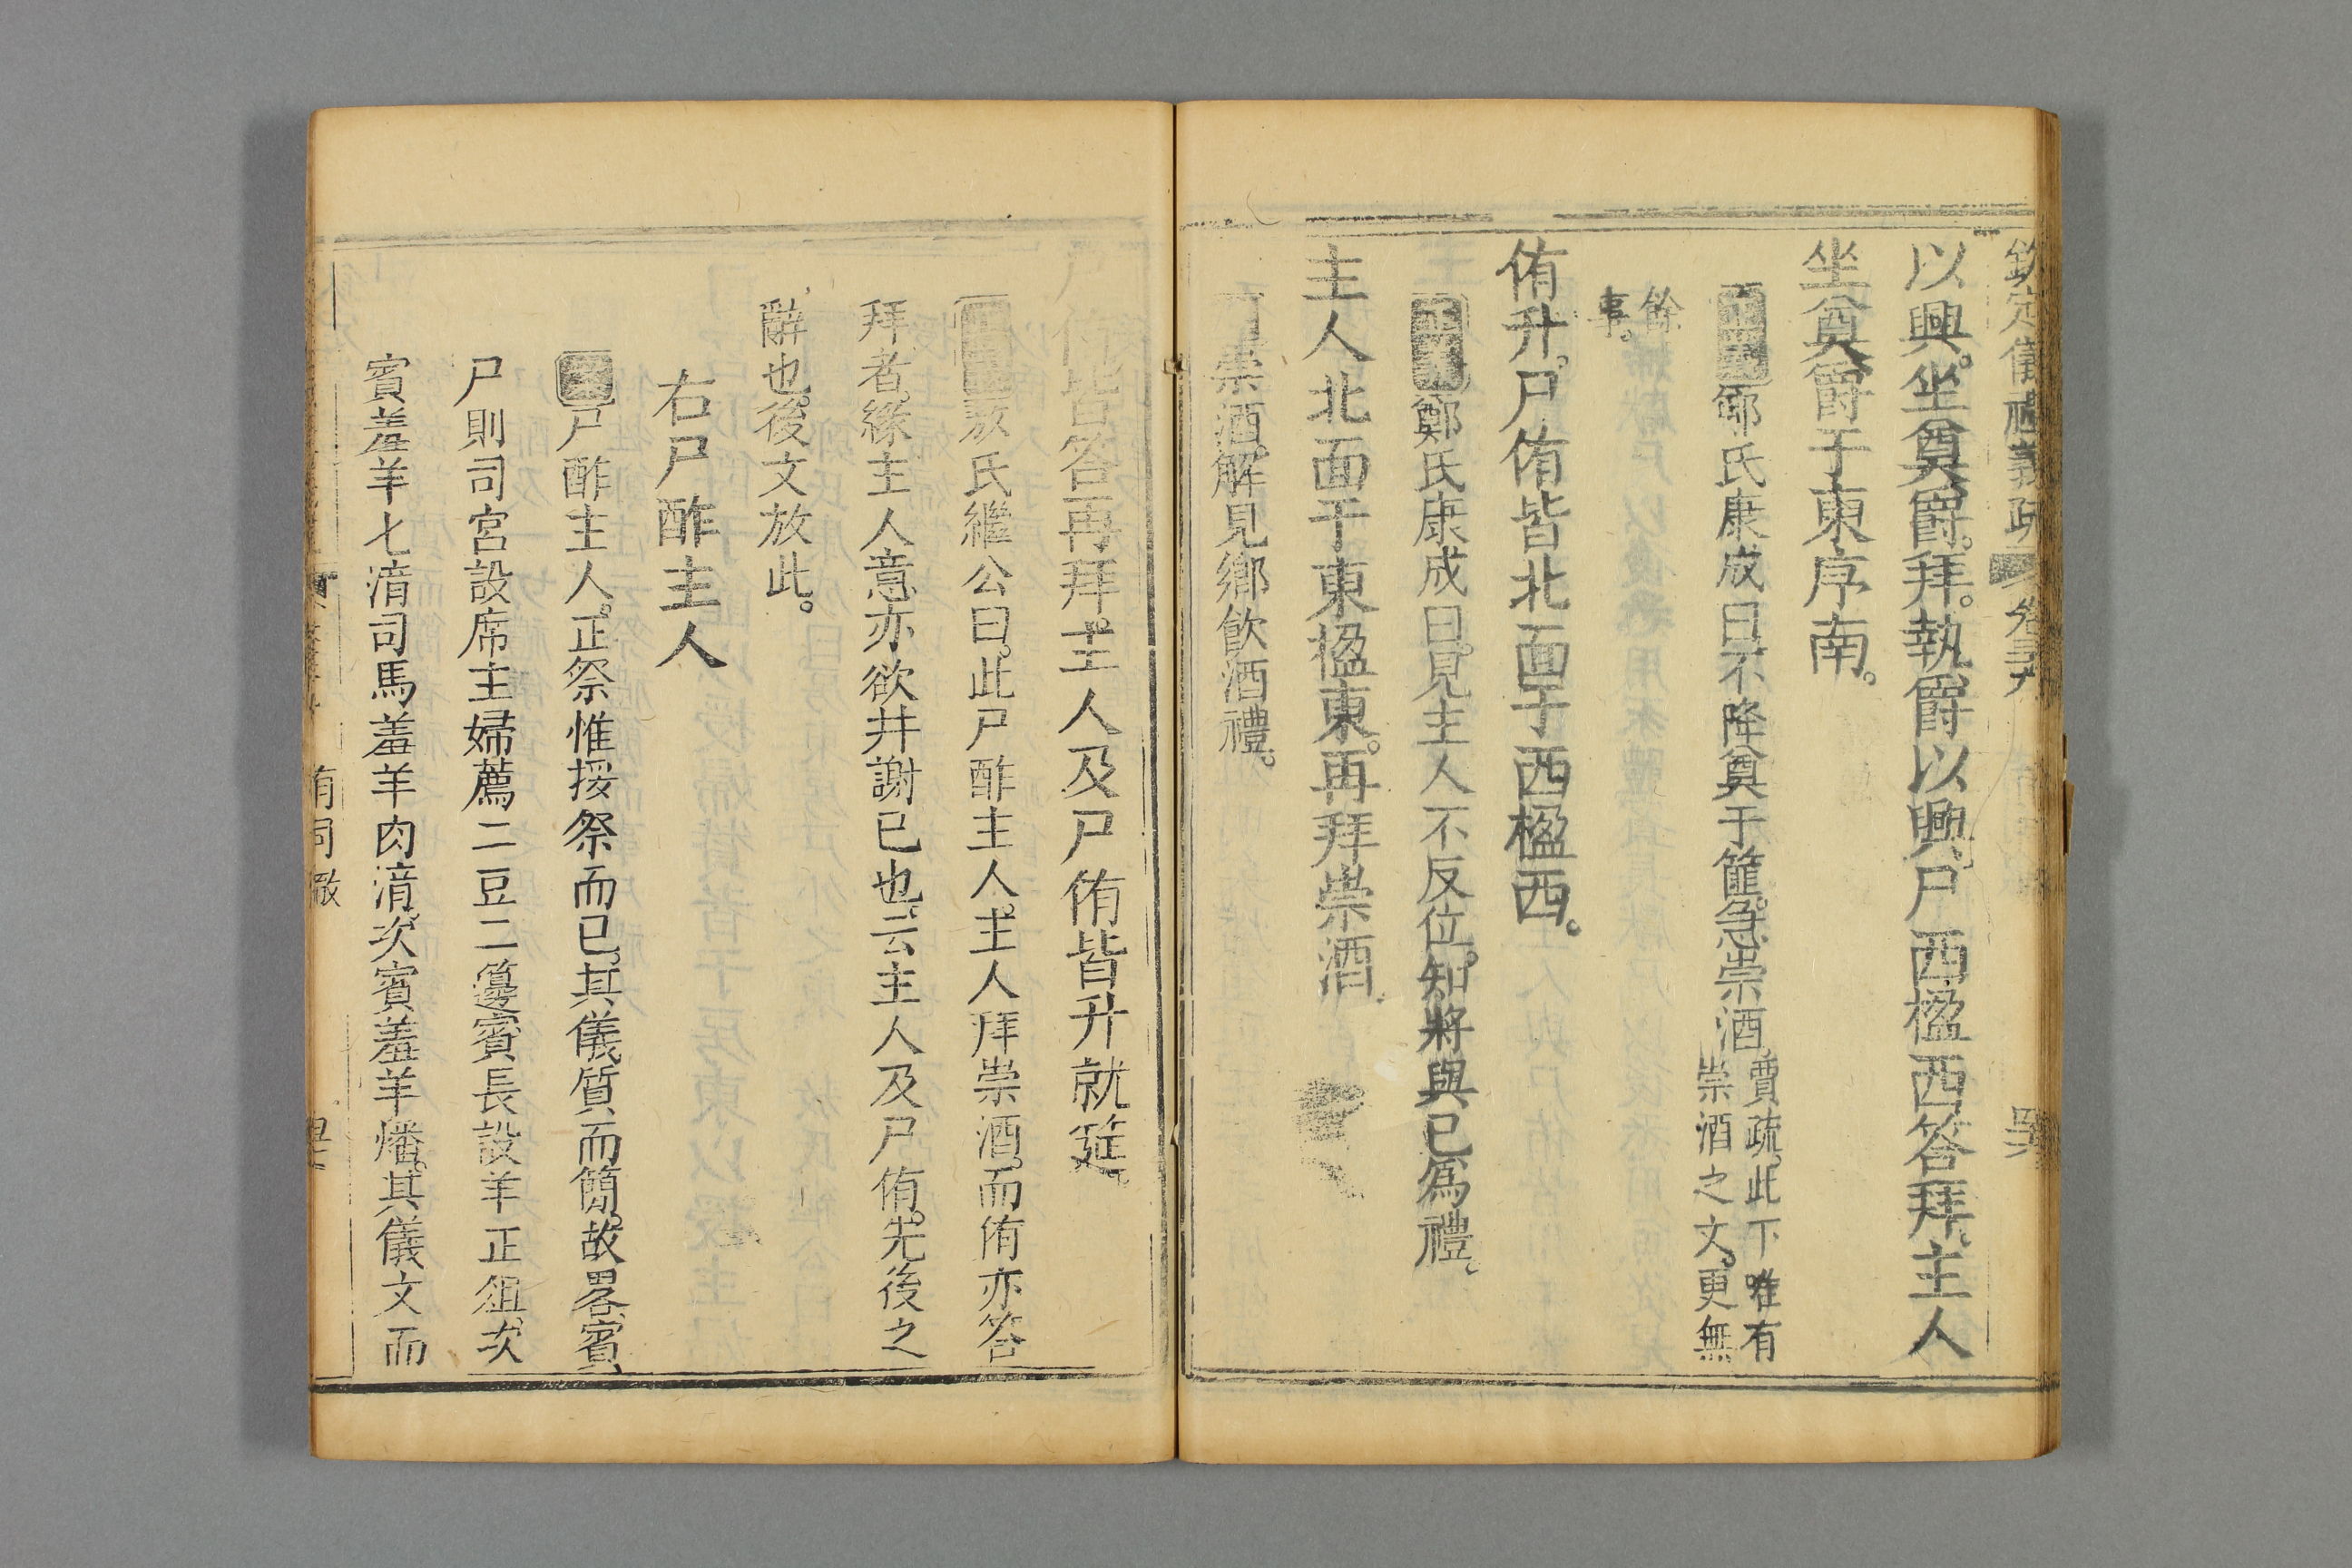 欽定儀禮義疏 卷三十九
以興。坐奠爵。拜。執爵以興。尸西楹西答拜。主人
坐奠爵于東序南。
正義 鄭氏康成曰。不降奠于篚。急崇酒。賈疏。此下唯有
崇酒之文。更無
餘
事。
侑升。尸侑皆北面于西楹西。
正義 鄭氏康成曰。見主人不反位。知將與己為禮。
主人北面于東楹東。再拜崇酒。
崇酒。解見鄉飲酒禮。
尸侑皆答再拜。主人及尸侑皆升就筵。
敖氏繼公曰。此尸酢主人。主人拜崇酒。而侑亦答
拜者。緣主人意亦欲并謝已也。云主人及尸侑。先後之
辭也。後文放此。
右尸酢主人
尸酢主人。正祭惟挼祭而已。其儀質而簡。故畧。賓
尸則司宮設席主婦薦二豆二籩賓長設羊正俎。次
賓羞羊匕湆司馬羞羊肉湆。次賓羞羊燔。其儀文而
有司徹